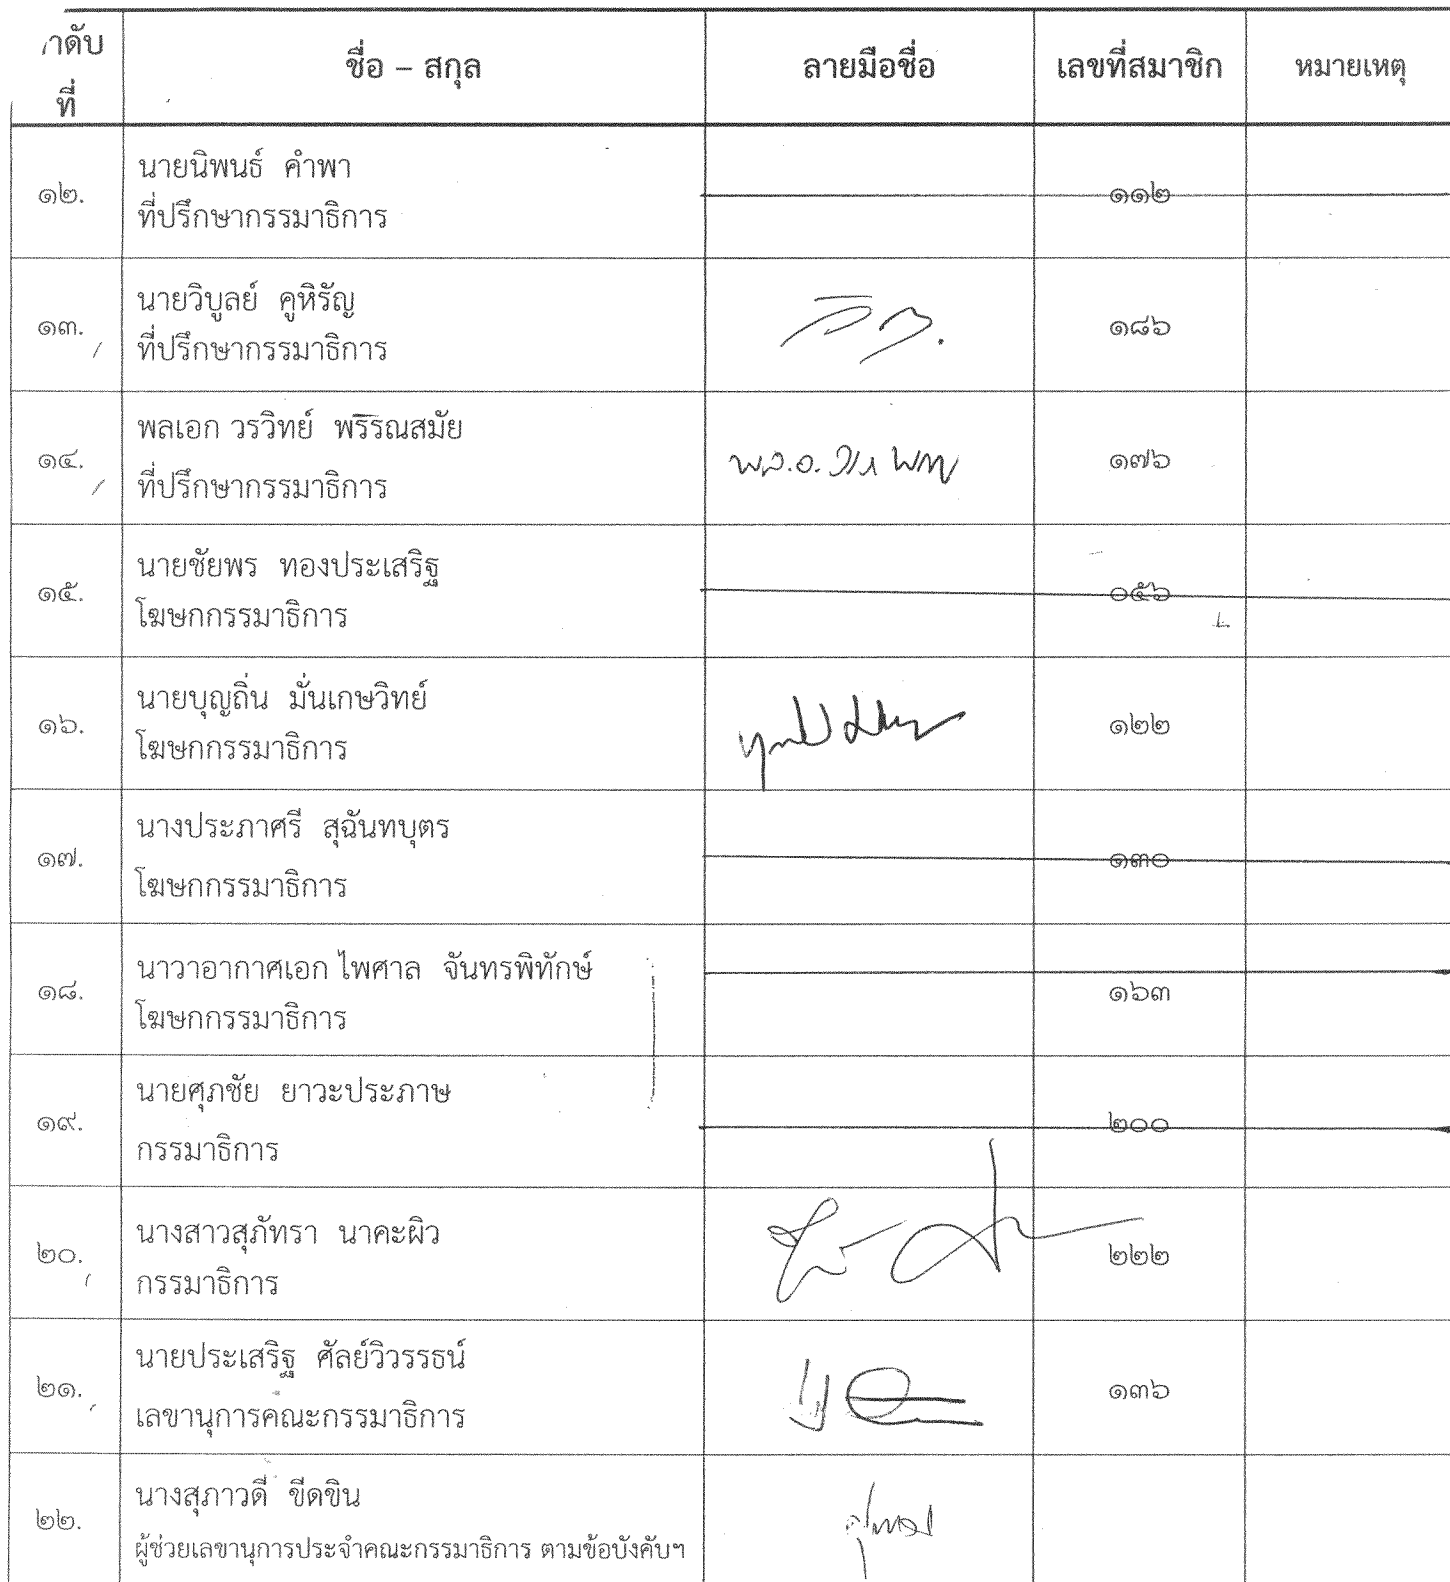 ลำดับ ชื่อ – สกุล ลายมือชื่อ เลขที่สมาชิก หมายเหตุ
ที่
๑๒. นายนิพนธ์ คำพา ๑๑๒
ที่ปรึกษากรรมาธิการ
๑๓. นายวิบูลย์ คูหิรัญ ๑๘๖
ที่ปรึกษากรรมาธิการ
๑๔. พลเอก วรวิทย์ พรรณสมัย ๑๗๖
ที่ปรึกษากรรมาธิการ
๑๕. นายชัยพร ทองประเสริฐ ๐๕๖
โฆษกกรรมาธิการ
๑๖. นายบุญถิ่น มั่นเกษวิทย์ ๑๒๒
โฆษกกรรมาธิการ
๑๗. นางประภาศรี สุฉันทบุตร ๑๓๐
โฆษกกรรมาธิการ
๑๘. นาวาอากาศเอก ไพศาล จันทรพิทักษ์ ๑๖๓
โฆษกกรรมาธิการ
๑๙. นายศุภชัย ยาวะประภาษ ๒๐๐
กรรมาธิการ
๒๐. นางสาวสุภัทรา นาคะผิว ๒๒๒
กรรมาธิการ
๒๑. นายประเสริฐ ศัลย์วิวรรธน์ ๑๓๖
เลขานุการคณะกรรมาธิการ
๒๒. นางสุภาวดี ขีดขิน
ผู้ช่วยเลขานุการประจำคณะกรรมาธิการ ตามข้อบังคับฯ